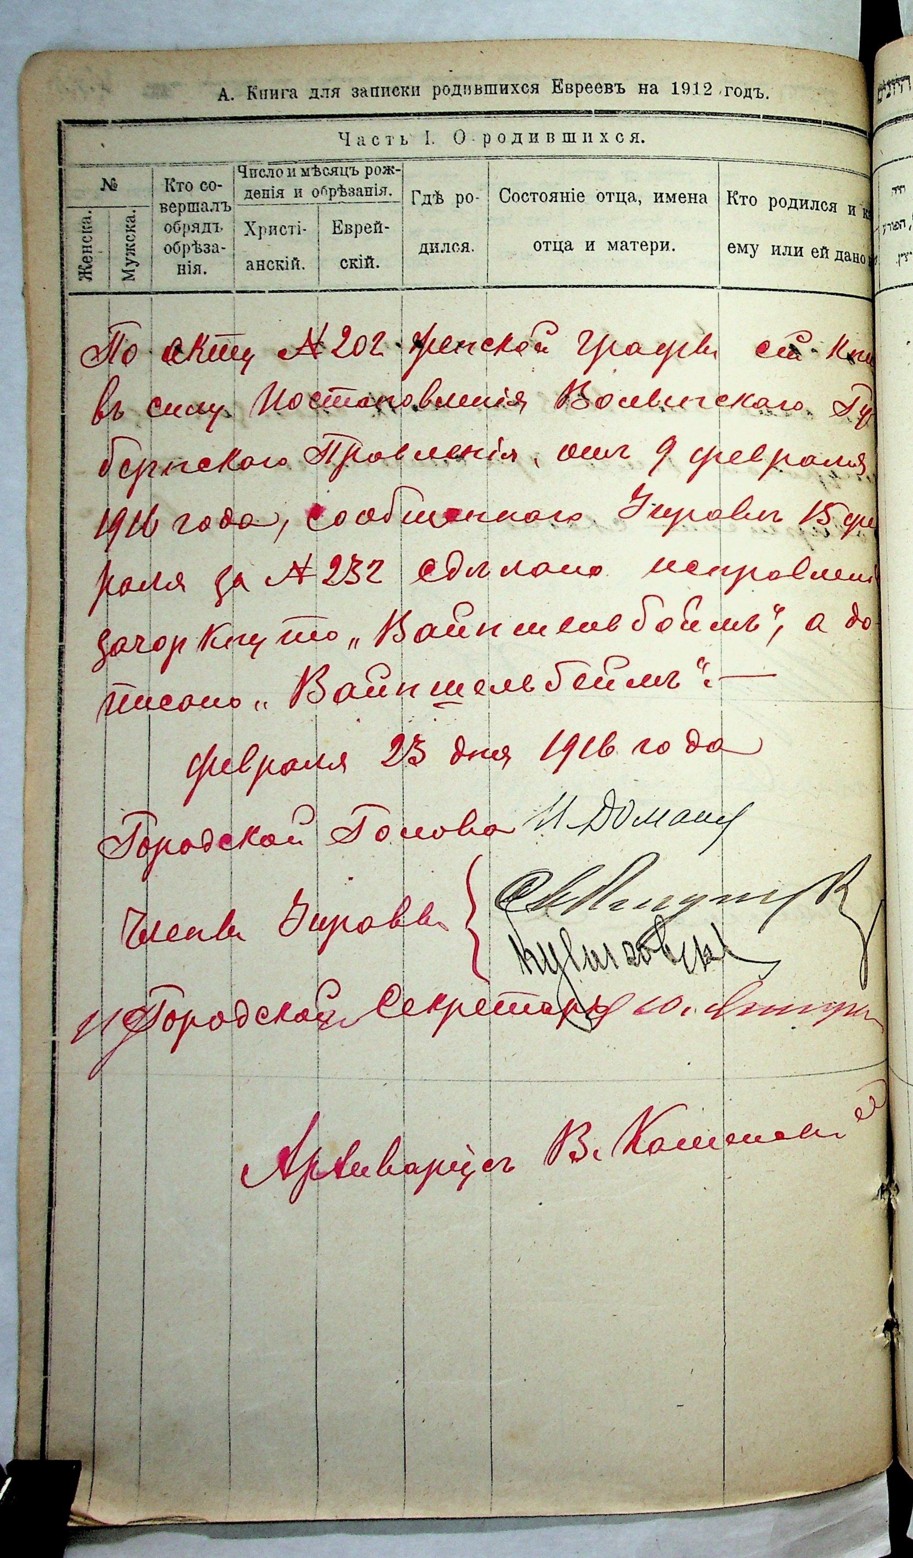 А. Книга для записки родившихся Евреевъ на 1912 годъ.
Часть I. О родившихся.
№
Женска.
Мужска.
Кто со-
вершалъ
обрядъ
обрѣза-
нія.
Число и мѣсяцъ рож-
денія и обрѣзанія.
Христі-
анскій.
Еврей-
скій.
Гдѣ ро-
дился.
Состояніе отца, имена
отца и матери.
Кто родился и
ему или ей дано
По акту № 202 женской графы сей
въ силу Постановленія Волынскаго Гу
бернскаго Правленія, отъ 9 февраля
1916 года, сообщеннаго Управѣ 15 фе
раля за № 232 сдѣлано исправлені
зачеркнуто „Вайншельбоймъ", а до
писано „Вайншельбеймъ".—
февраля 23 дня 1916 года
Городской Голова
Члены Управы
И Д Городской Секретарь
Архиваріусъ В.